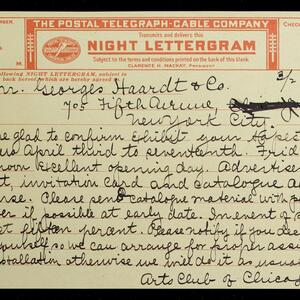 THE POSTAL TELEGRAPH-CABLE COMPANY
Transmits and delivers this
NIGHT LETTERGRAM
Subject to the terms and conditions printed on the back hereof.
CLARENCE H. MACKAY, PRESIDENT
following NIGHT LETTERGRAM, subject to
back hereof, which are hereby
Georges Haardt & Co.
705 Fifth Avenue,
New York City.
glad to confirm exhibit your tapes
April third to seventeenth. Frid
noon excellent opening day. Advertise
invitation card and catalogue a
ense. Please send catalogue material with p
if possible at early date. In event of
fifteen percent. Please notify if you de
yourself so we can arrange for proper ass
installation otherwise we will do it as usual
Arts Club of Chicago